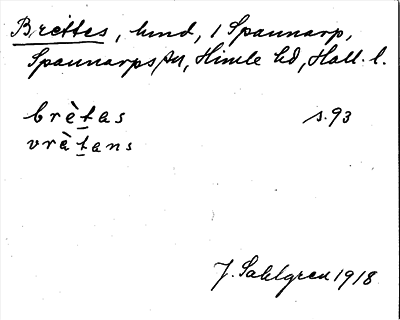 Brettes, hmd, i Spannarp,
Spannarps sn, Himle hd, Hall. l.
brètas s. 93
vrètans
J. Sahlgren 1918